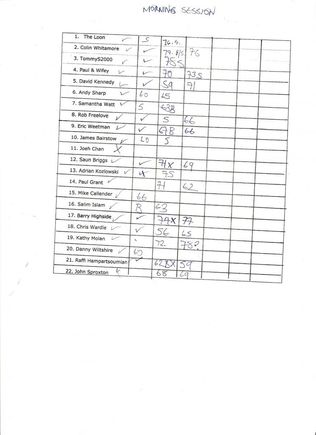 MORNING SESSION
1. The Loon ✓ 5 76.5.
2. Colin Whitamore ✓ ✓ 76
3. TommyS2000 ✓ ✓
4. Paul & Wifey ✓ ✓ 70 735
5. David Kennedy ✓ ✓ 59 91
6. Andy Sharp ✓ 60 65
7. Samantha Watt ✓ 5
8. Rob Freelove ✓ ✓ 5 66
9. Eric Weetman ✓ ✓ 66
10. James Bairstow ✓ 60 5
11. Joeh Chan X
12. Saun Briggs ✓ ✓ 69
13. Adrian Kozlowski ✓ 75
14. Paul Grant ✓ 71 62
15. Mike Callender ✓ 66
16. Salim Islam ✓ 63
17. Barry Highside ✓ ✓ 77
18. Chris Wardle ✓ ✓ 56 65
19. Kathy Molan ✓ 72 78?
20. Danny Wiltshire ✓ 63
21. Raffi Hampartsoumian ✓ 59
22. John Sproxton 68 69